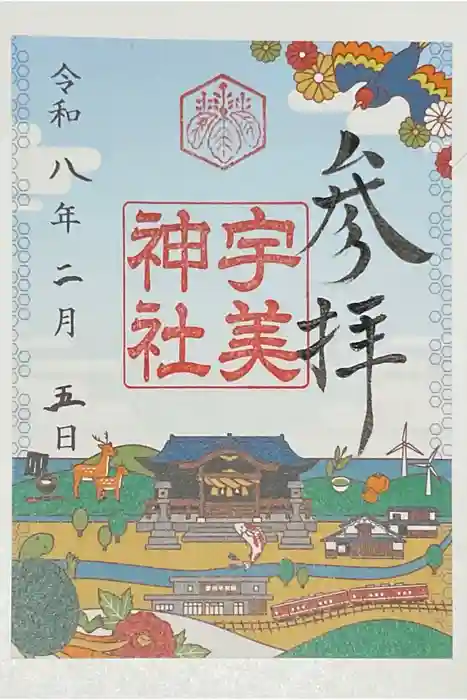 参拝
宇美
神社
令和八年二月五日